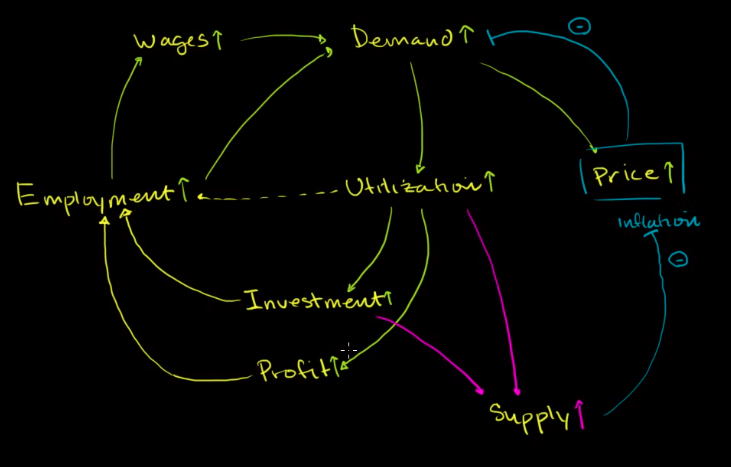 Wages↑
Demand↑
⊖
Employment↑
Utilization↑
Price↑
inflation
⊖
Investment↑
Profit↑
Supply↑